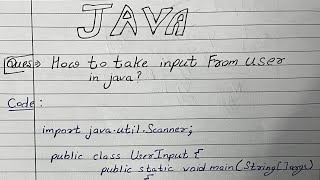 JAVA
Ques → How to take input from user
in java?
Code :
import java.util.Scanner;
public class UserInput {
public static void main(String[] args)
{